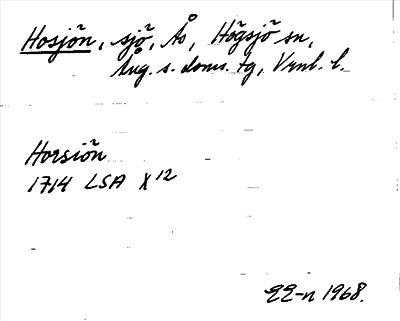 Hosjön, sjö, Ås, Högsjö sn,
Ång. s. doms. tg, Vrnl. l.
Horsiön
1714 LSA X 12
EE-n 1968.